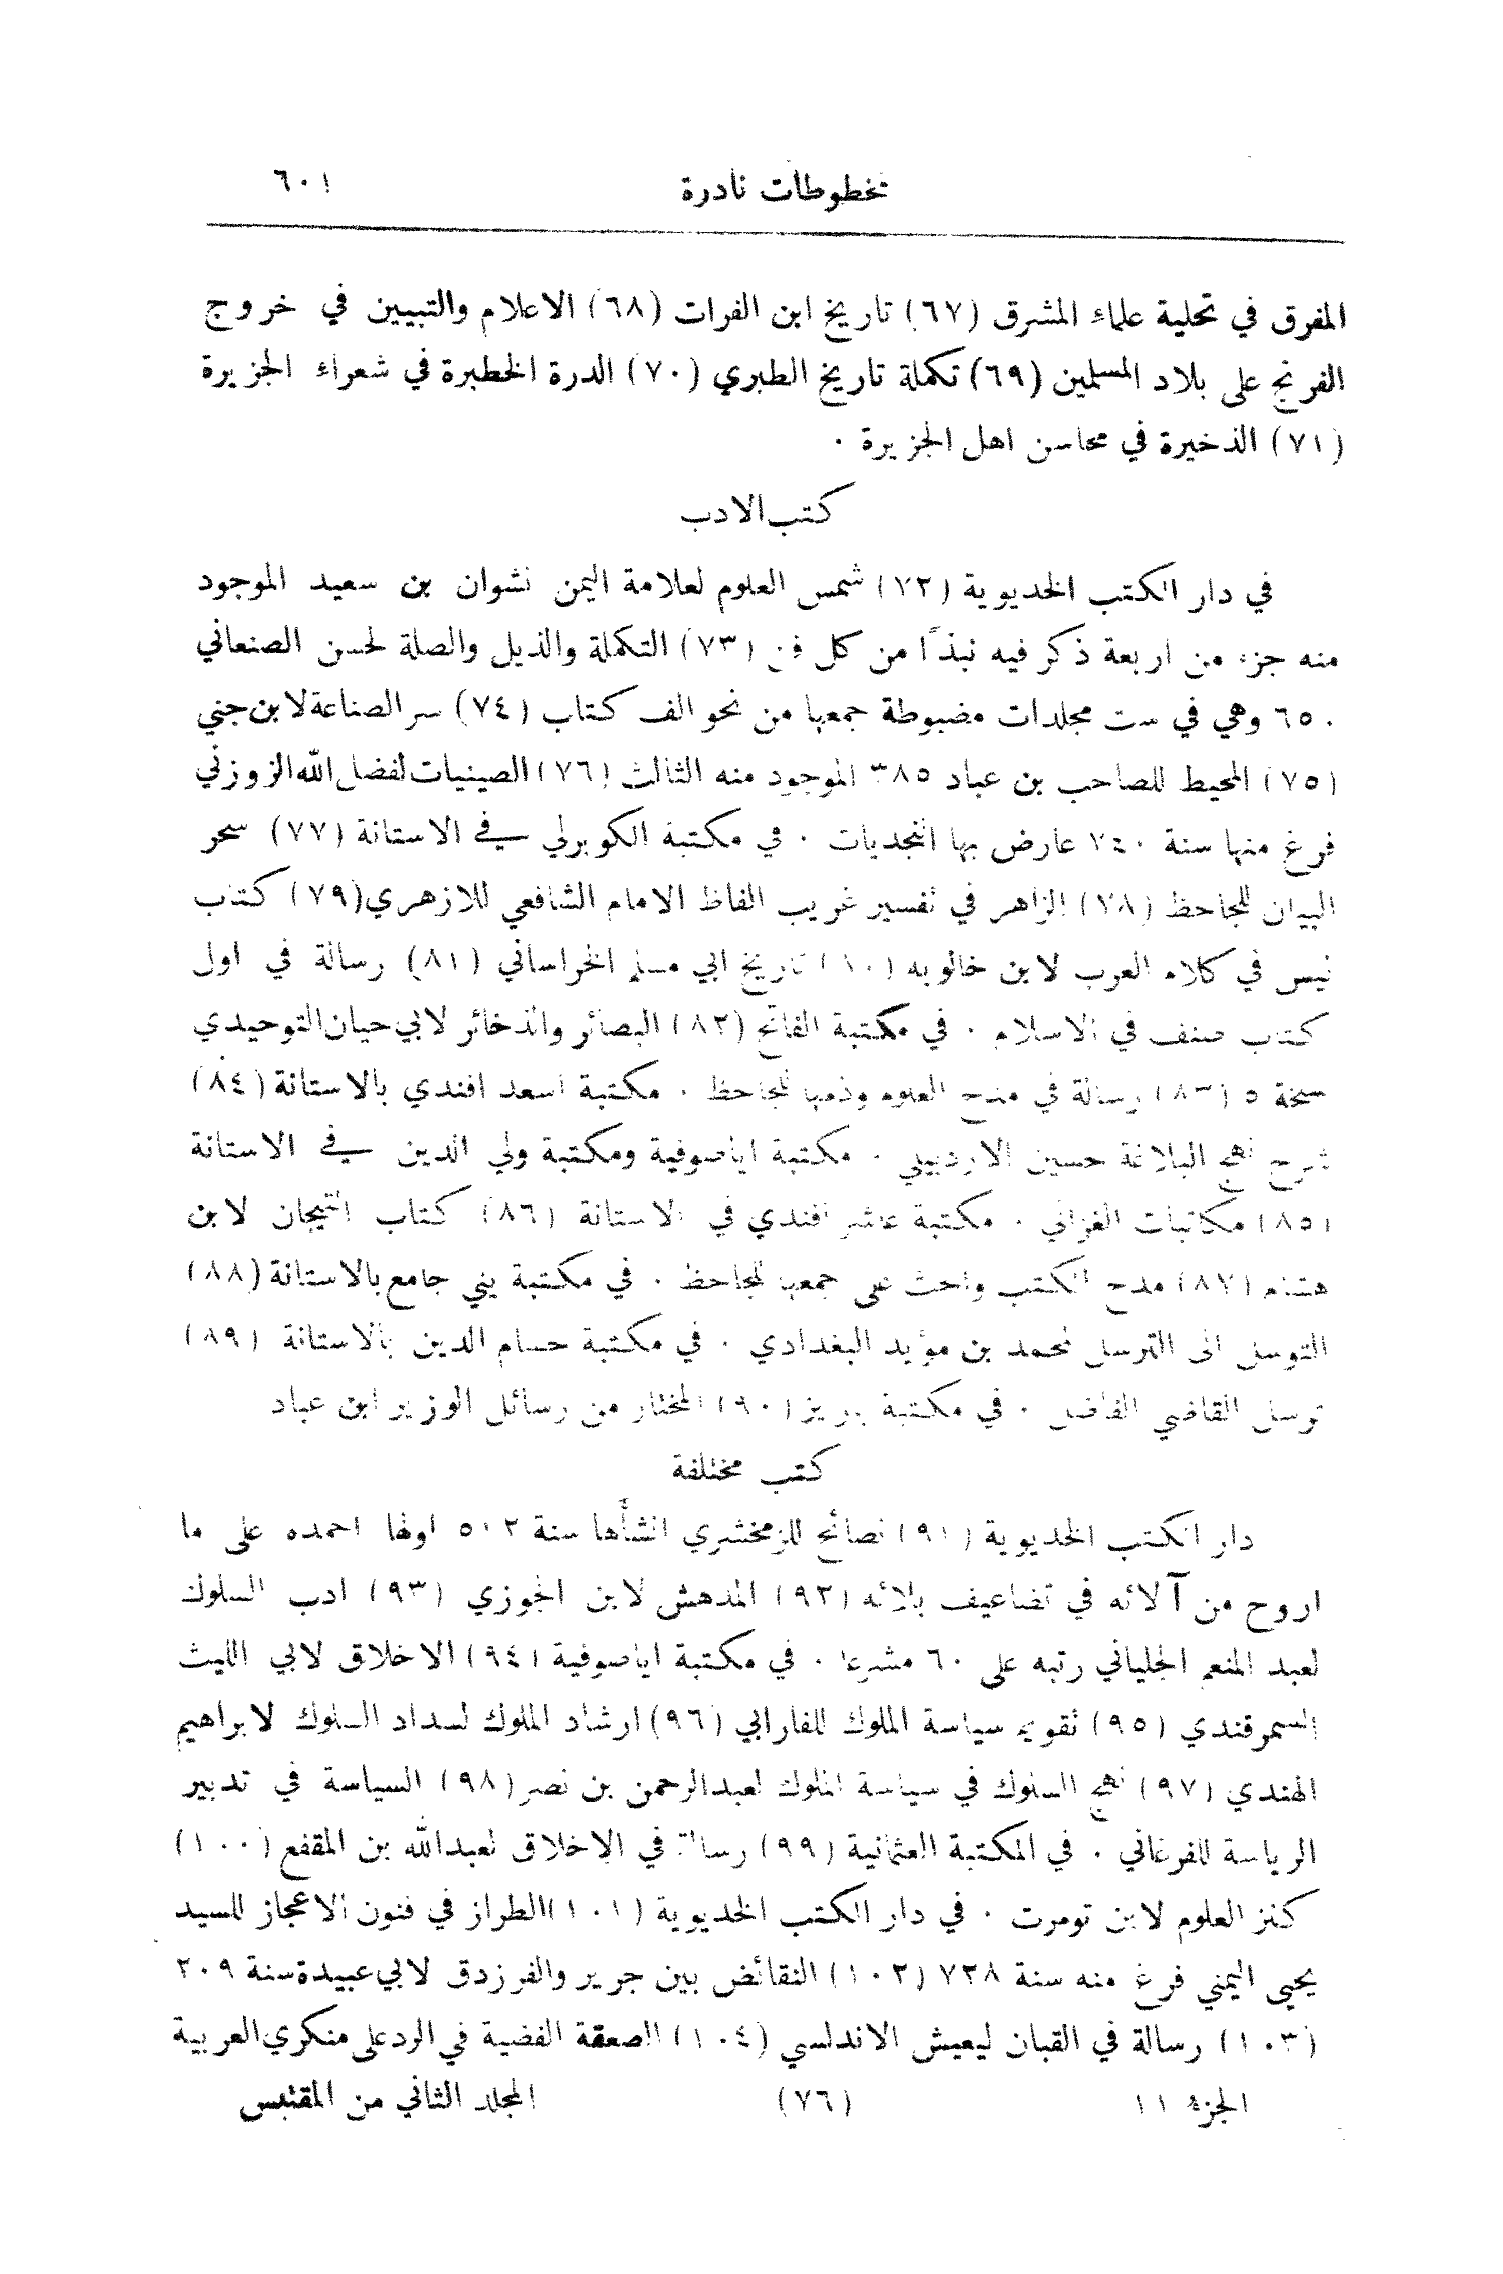 مخطوطات نادرة ٦٠١
المفرق في تحلية علماء المشرق (٦٧) تاريخ ابن الفرات (٦٨) الاعلام والتبيين في خروج
الفرنج على بلاد المسلمين (٦٩) تكملة تاريخ الطبري (٧٠) الدرة الخطيرة في شعراء الجزيرة
(٧١) الذخيرة في محاسن اهل الجزيرة .
كتب الادب
في دار الكتب الخديوية (٧٢) شمس العلوم لعلامة اليمن نشوان بن سعيد الموجود
منه جزء من اربعة ذكر فيه نبذاً من كل فن (٧٣) التكملة والذيل والصلة لحسن الصنعاني
٦٥٠ وهي في ست مجلدات مضبوطة جمعها من نحو الف كتاب (٧٤) سر الصناعة لابن جني
(٧٥) المحيط للصاحب بن عباد ٣٨٥ الموجود منه الثالث (٧٦) الصينيات لفضل الله الزوزني
فرغ منها سنة ٧٤٠ عارض بها النجديات . في مكتبة الكوبرلي في الاستانة (٧٧) سحر
البيان للجاحظ (٧٨) الزاهر في تفسير غريب الفاظ الامام الشافعي للازهري (٧٩) كتاب
ليس في كلام العرب لابن خالويه (٨٠) تاريخ ابي مسلم الخراساني (٨١) رسالة في اول
كتاب صنف في الاسلام . في مكتبة الفاتح (٨٢) البصائر والذخائر لابي حيان التوحيدي
نسخة ٥ (٨٣) رسالة في مدح العلوم وذمها للجاحظ . مكتبة اسعد افندي بالاستانة (٨٤)
شرح نهج البلاغة حسين الاردبيلي . مكتبة اياصوفية ومكتبة ولي الدين في الاستانة
(٨٥) مكاتبات الغزالي . مكتبة عاشر افندي في الاستانة (٨٦) كتاب التيجان لابن
هشام (٨٧) مدح الكتب والحث على جمعها للجاحظ . في مكتبة يني جامع بالاستانة (٨٨)
التوسل الى الترسل لمحمد بن مؤيد البغدادي . في مكتبة حسام الدين بالاستانة (٨٩)
ترسل القاضي الفاضل . في مكتبة (٩٠) المختار من رسائل الوزير ابن عباد
كتب مختلفة
دار الكتب الخديوية (٩١) نصائح للزمخشري انشأها سنة ٥٠٢ اولها احمده على ما
اروح من آلائه في تضاعيف بلائه (٩٢) المدهش لابن الجوزي (٩٣) ادب السلوك
لعبد المنعم الجلياني رتبه على ٦٠ مشرعا . في مكتبة اياصوفية (٩٤) الاخلاق لابي الليث
السمرقندي (٩٥) تقويم سياسة الملوك للفارابي (٩٦) ارشاد الملوك لسداد السلوك لابراهيم
الهندي (٩٧) نهج السلوك في سياسة الملوك لعبدالرحمن بن نصر (٩٨) السياسة في تدبير
الرياسة للفرغاني . في المكتبة العثمانية (٩٩) رسالة في الاخلاق لعبدالله بن المقفع (١٠٠)
كنز العلوم لابن تومرت . في دار الكتب الخديوية (١٠١) الطراز في فنون الاعجاز للسيد
يحيى اليمني فرغ منه سنة ٧٢٨ (١٠٢) النقائض بين جرير والفرزدق لابي عبيدة سنة ٢٠٩
(١٠٣) رسالة في القبان ليعيش الاندلسي (١٠٤) الصعقة الفضية في الرد على منكري العربية
الجزء ١١ (٧٦) المجلد الثاني من المقتبس